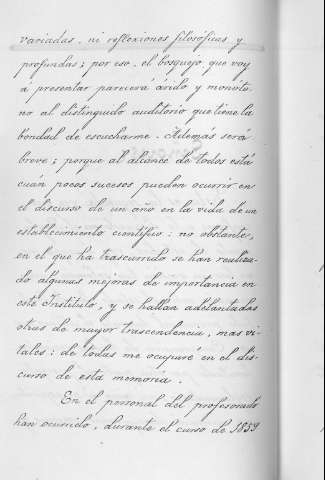 variadas, ni reflexiones filosóficas y
profundas; por eso, el bosquejo que voy
á presentar parecerá árido y monóto-
no al distinguido auditorio que tiene la
bondad de escucharme. Además será
breve; porque al alcance de todos está
cuán pocos sucesos pueden ocurrir en
el discurso de un año en la vida de un
establecimiento científico: no obstante,
en el que ha trascurrido se han realiza-
do algunas mejoras de importancia en
este Instituto, y se hallan adelantadas
otras de mayor trascendencia, mas vi-
tales: de todas me ocuparé en el dis-
curso de esta memoria.
En el personal del profesorado
han ocurrido, durante el curso de 1859